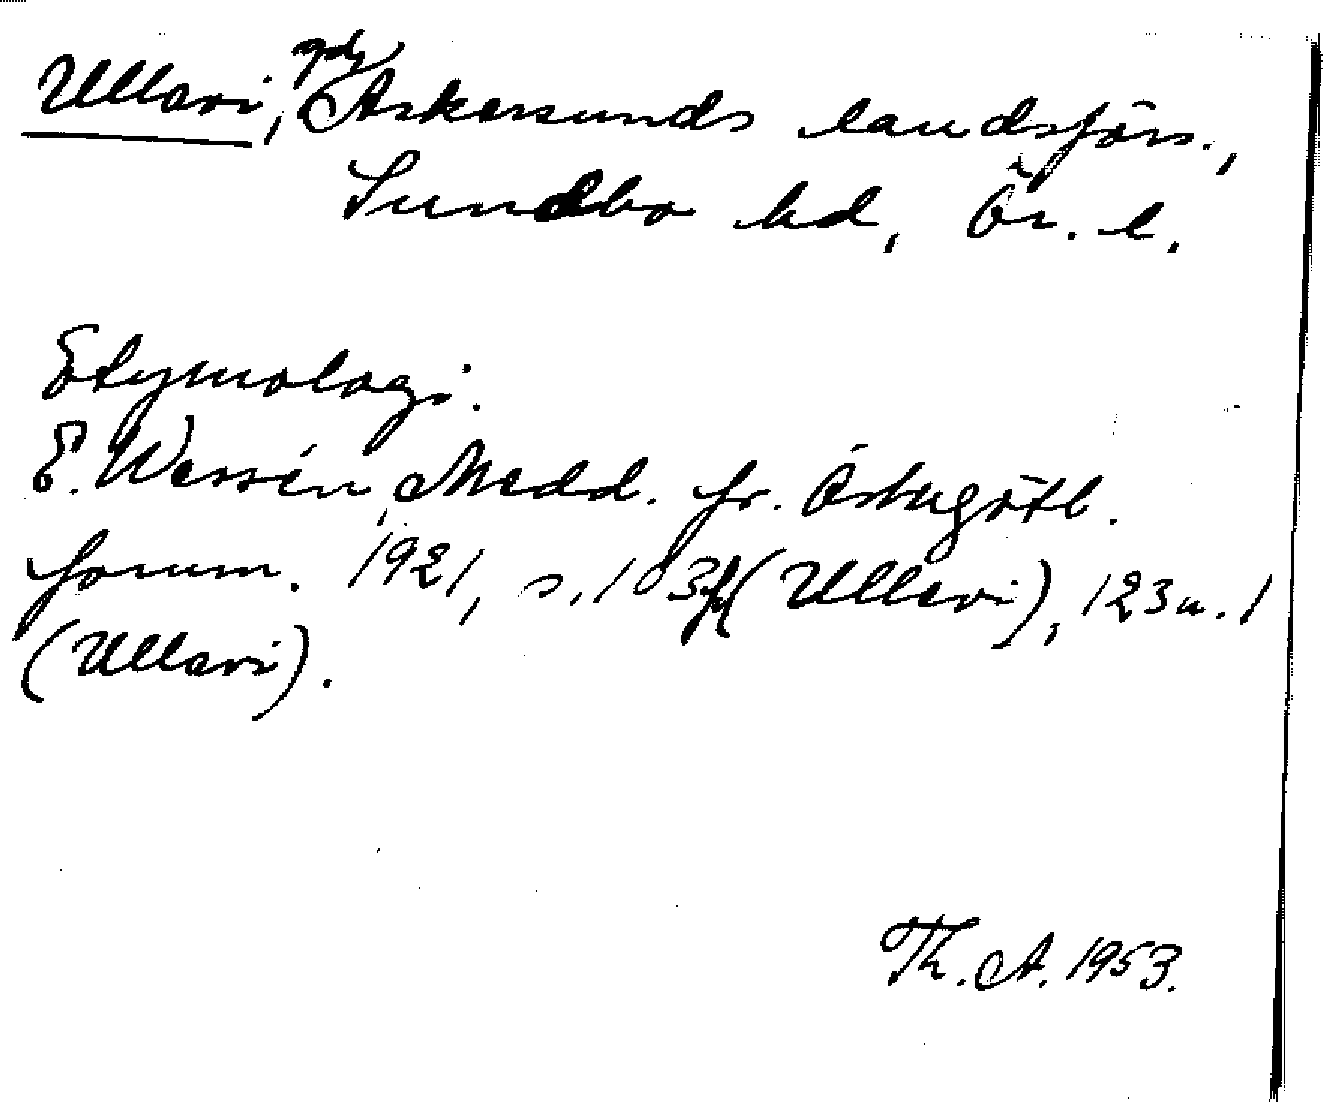 Ullavi, gd, Askersunds landsförs.,
Sundbo hd, Ör. l.
Etymologi.
E. Wessén, Medd. fr. Östergötl.
fornm. 1921, s. 103 ff (Ullevi), 123 n. 1
(Ullavi).
Th. A. 1953.